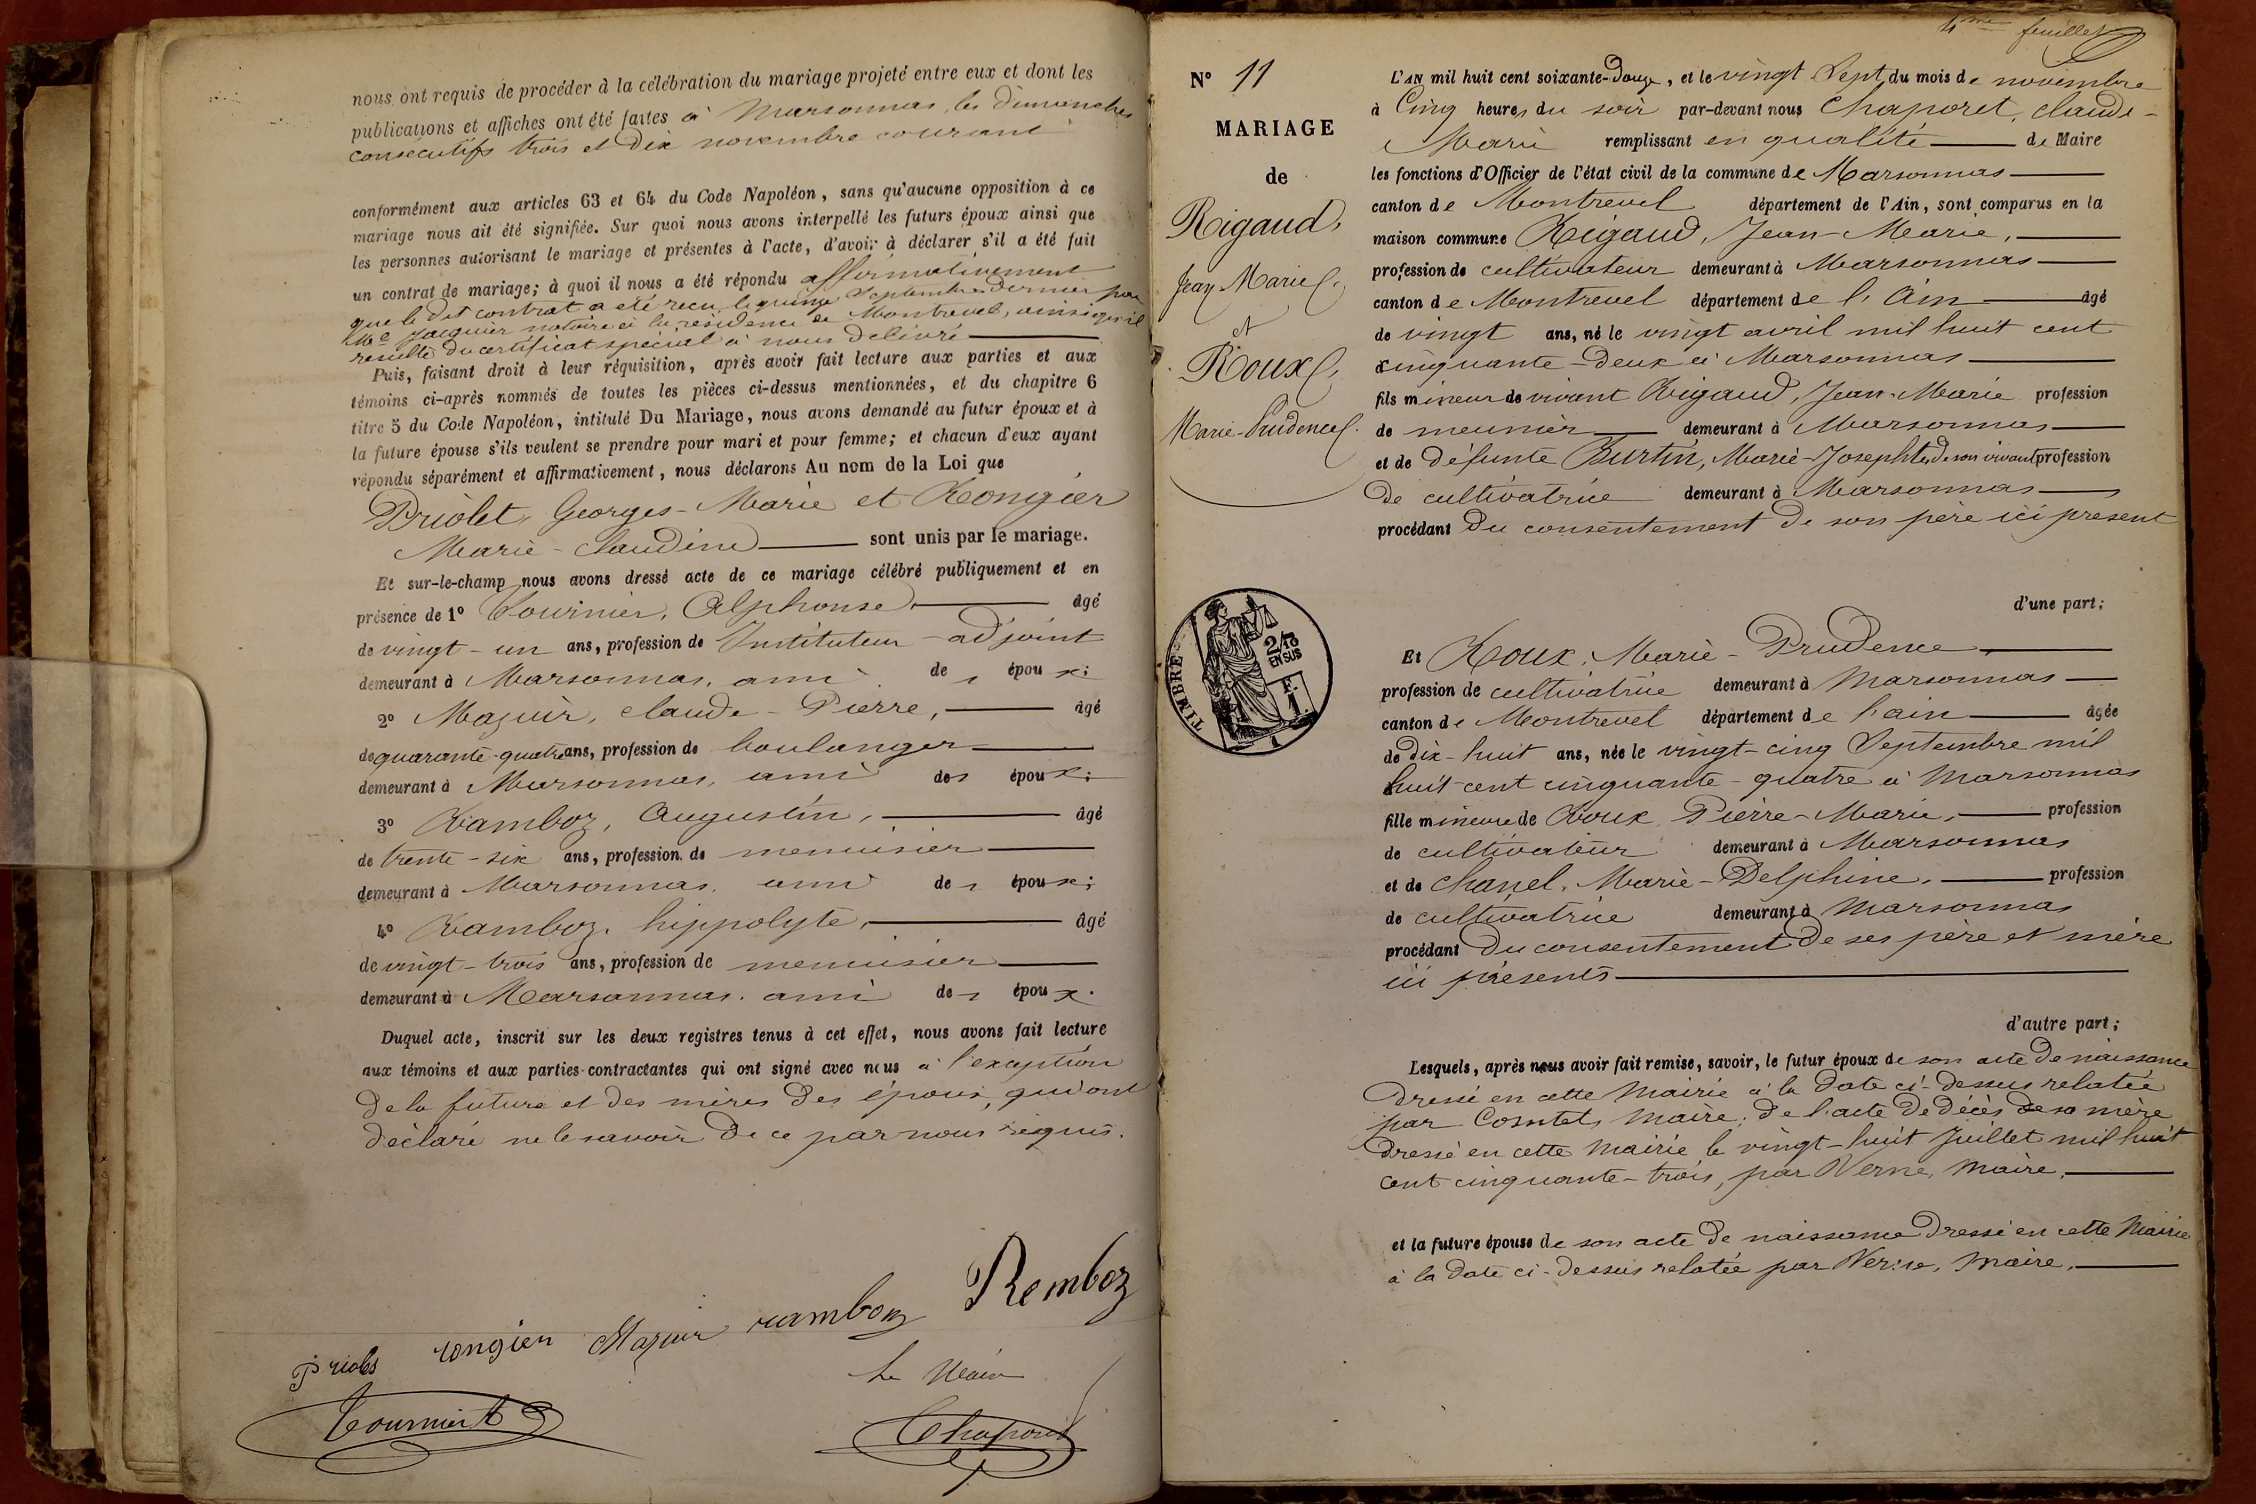 nous ont requis de procéder à la célébration du mariage projeté entre eux et dont les
publications et affiches ont été faites à Marsonnas, les dimanches
consécutifs trois et dix novembre courant
conformément aux articles 63 et 64 du Code Napoléon, sans qu'aucune opposition à ce
mariage nous ait été signifiée. Sur quoi nous avons interpellé les futurs époux ainsi que
les personnes autorisant le mariage et présentes à l'acte, d'avoir à déclarer s'il a été fait
un contrat de mariage; à quoi il nous a été répondu affirmativement
que le dit contrat a été reçu le quinze Septembre dernier par
Me Jacquier notaire à la résidence de Montrevel, ainsi qu'il
résulte du certificat spécial à nous délivré
Puis, faisant droit à leur réquisition, après avoir fait lecture aux parties et aux
témoins ci-après nommés de toutes les pièces ci-dessus mentionnées, et du chapitre 6
titre 5 du Code Napoléon, intitulé Du Mariage, nous avons demandé au futur époux et à
la future épouse s'ils veulent se prendre pour mari et pour femme; et chacun d'eux ayant
répondu séparément et affirmativement, nous déclarons Au nom de la Loi que
Priolet, Georges-Marie et Rongier
Marie-Claudine sont unis par le mariage.
Et sur-le-champ nous avons dressé acte de ce mariage célébré publiquement et en
présence de 1° Tournier, Alphonse, âgé
de vingt-un ans, profession de Instituteur-adjoint
demeurant à Marsonnas, ami des époux;
2° Mazuir, claude-Pierre, âgé
de quarante-quatre ans, profession de boulanger
demeurant à Marsonnas, ami des époux;
3° Ramboz, Augustin, âgé
de trente-six ans, profession de menuisier
demeurant à Marsonnas, ami des époux;
4° Ramboz, hippolyte, âgé
de vingt-trois ans, profession de menuisier
demeurant à Marsonnas, ami des époux.
Duquel acte, inscrit sur les deux registres tenus à cet effet, nous avons fait lecture
aux témoins et aux parties contractantes qui ont signé avec nous à l'exception
de la future et des mères des époux, qui ont
déclaré ne le savoir de ce par nous requis.
Remboz
Priolet rongier Mazuir ramboz
Le Maire
Tournier A
Chaporet
4me feuillet
N° 11
MARIAGE
de
Rigaud,
Jean Marie,
et
Roux,
Marie-Prudence.
TIMBRE
2/10
EN SUS
F.
1.
1
L'AN mil huit cent soixante-Douze, et le vingt Sept du mois de novembre
à Cinq heures du soir par-devant nous Chaporet, claude-
Marie remplissant en qualité de Maire
les fonctions d'Officier de l'état civil de la commune de Marsonnas
canton de Montrevel département de l'Ain, sont comparus en la
maison commune Rigaud, Jean-Marie,
profession de cultivateur demeurant à Marsonnas
canton de Montrevel département de l'Ain âgé
de vingt ans, né le vingt avril mil huit cent
cinquante-deux à Marsonnas
fils mineur de vivant Rigaud, Jean-Marie profession
de meunier demeurant à Marsonnas
et de défunte Burtin, Marie-Josephte, de son vivant profession
de cultivatrice demeurant à Marsonnas
procédant du consentement de son père ici présent
d'une part;
Et Roux, Marie-Prudence,
profession de cultivatrice demeurant à Marsonnas
canton de Montrevel département de l'ain âgée
de dix-huit ans, née le vingt-cinq Septembre mil
huit-cent cinquante-quatre à Marsonnas
fille mineure de Roux Pierre-Marie, profession
de cultivateur demeurant à Marsonnas
et de Chanel, Marie-Delphine, profession
de cultivatrice demeurant à Marsonnas
procédant du consentement de ses père et mère
ici présents
d'autre part;
Lesquels, après nous avoir fait remise, savoir, le futur époux de son acte de naissance
dressé en cette Mairie à la date ci-dessus relatée
par Comtet, Maire; de l'acte de décès de sa mère
dressé en cette Mairie le vingt-huit Juillet mil huit
cent cinquante-trois, par Verne, Maire,
et la future épouse de son acte de naissance dressé en cette Mairie
à la date ci-dessus relatée par Verne, Maire,